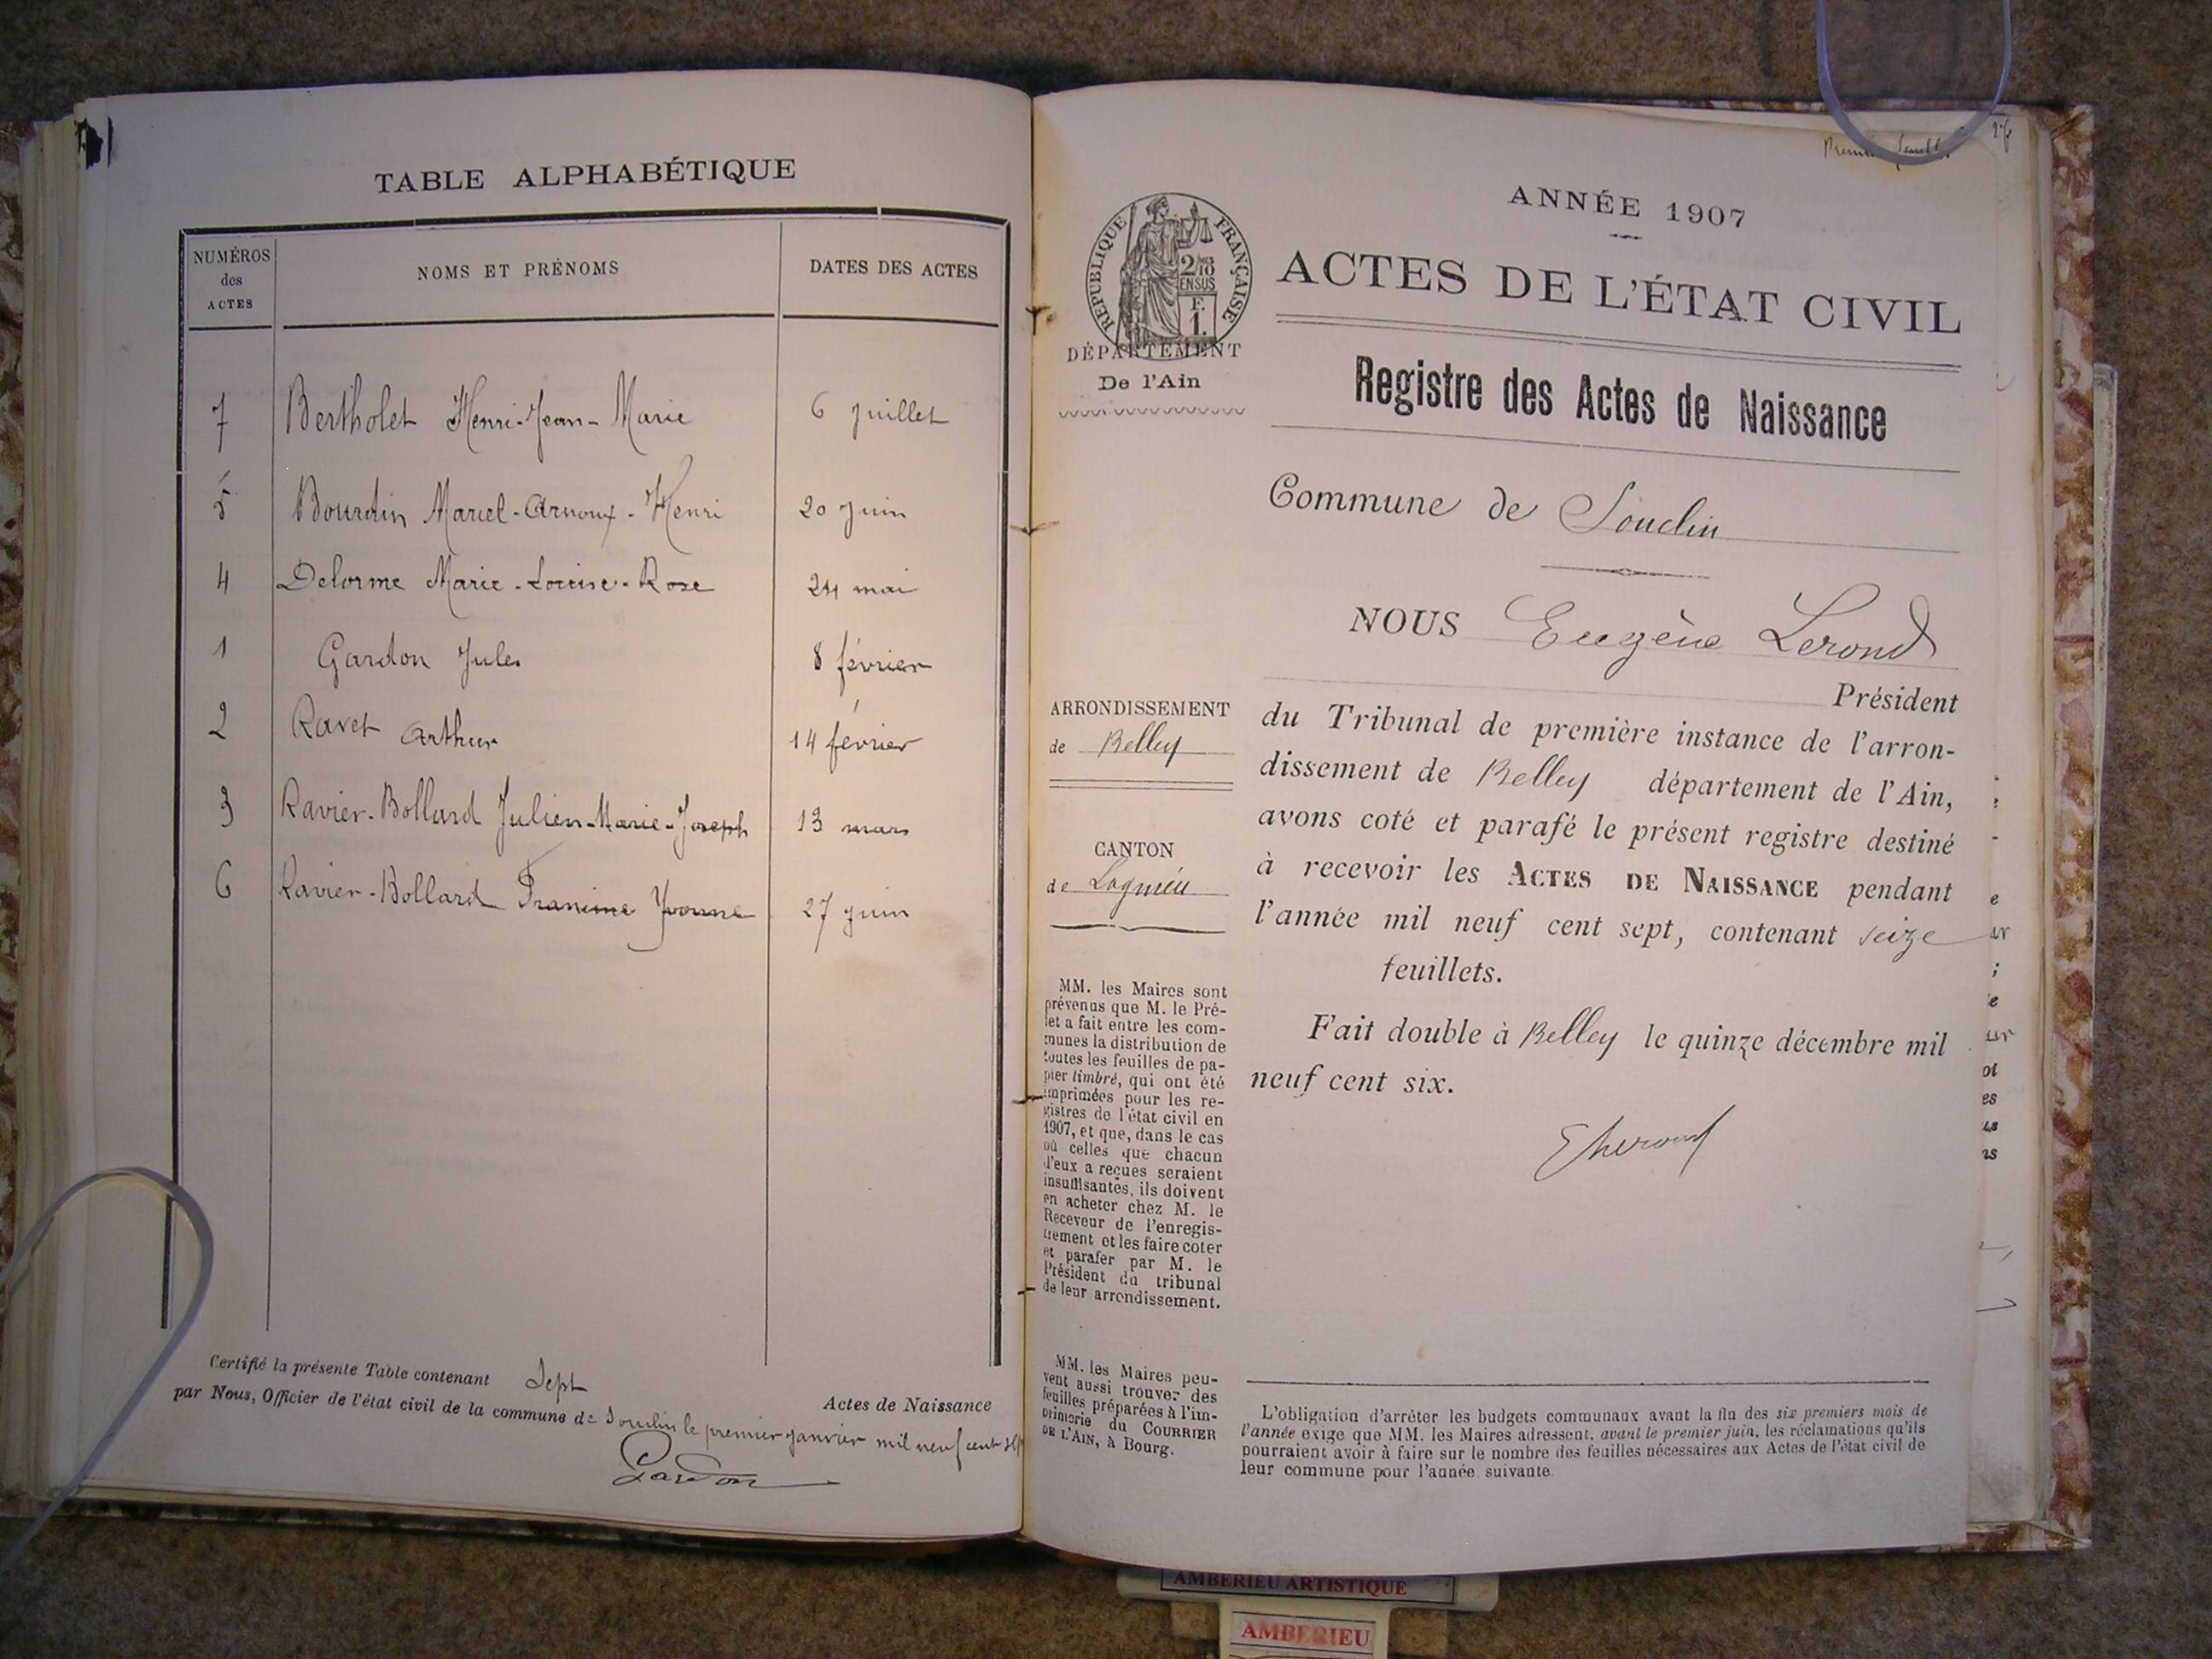 TABLE ALPHABÉTIQUE
NUMÉROS des ACTES
NOMS ET PRÉNOMS
DATES DES ACTES
7 Bertholet Henri-Jean-Marie 6 juillet
5 Bourdin Marcel-Arnoux-Henri 20 juin
4 Delorme Marie-Louise-Rose 24 mai
1 Gardon Jules 8 février
2 Ravet Arthur 14 février
3 Ravier-Bollard Julien-Marie-Joseph 13 mars
6 Ravier-Bollard Francine Yvonne 27 juin
Certifié la présente Table contenant Sept Actes de Naissance
par Nous, Officier de l'état civil de la commune de Souclin le premier janvier mil neuf cent sept
Gardon
Premier feuillet
ANNÉE 1907
RÉPUBLIQUE FRANÇAISE
2/10 EN SUS
F. 1.
ACTES DE L'ÉTAT CIVIL
DÉPARTEMENT
De l'Ain
Registre des Actes de Naissance
Commune de Souclin
NOUS Eugène Lerond
Président
ARRONDISSEMENT
de Belley
du Tribunal de première instance de l'arron-
dissement de Belley département de l'Ain,
avons coté et parafé le présent registre destiné
à recevoir les ACTES DE NAISSANCE pendant
l'année mil neuf cent sept, contenant seize
feuillets.
CANTON
de Lagnieu
Fait double à Belley le quinze décembre mil
neuf cent six.
MM. les Maires sont
prévenus que M. le Pré-
fet a fait entre les com-
munes la distribution de
toutes les feuilles de pa-
pier timbré, qui ont été
imprimées pour les re-
gistres de l'état civil en
1907, et que, dans le cas
où celles que chacun
d'eux a reçues seraient
insuffisantes, ils doivent
en acheter chez M. le
Receveur de l'enregis-
trement et les faire coter
et parafer par M. le
Président du tribunal
de leur arrondissement.
MM. les Maires peu-
vent aussi trouver des
feuilles préparées à l'im-
primerie du COURRIER
DE L'AIN, à Bourg.
L'obligation d'arrêter les budgets communaux avant la fin des six premiers mois de
l'année exige que MM. les Maires adressent, avant le premier juin, les réclamations qu'ils
pourraient avoir à faire sur le nombre des feuilles nécessaires aux Actes de l'état civil de
leur commune pour l'année suivante.
AMBERIEU ARTISTIQUE
AMBERIEU